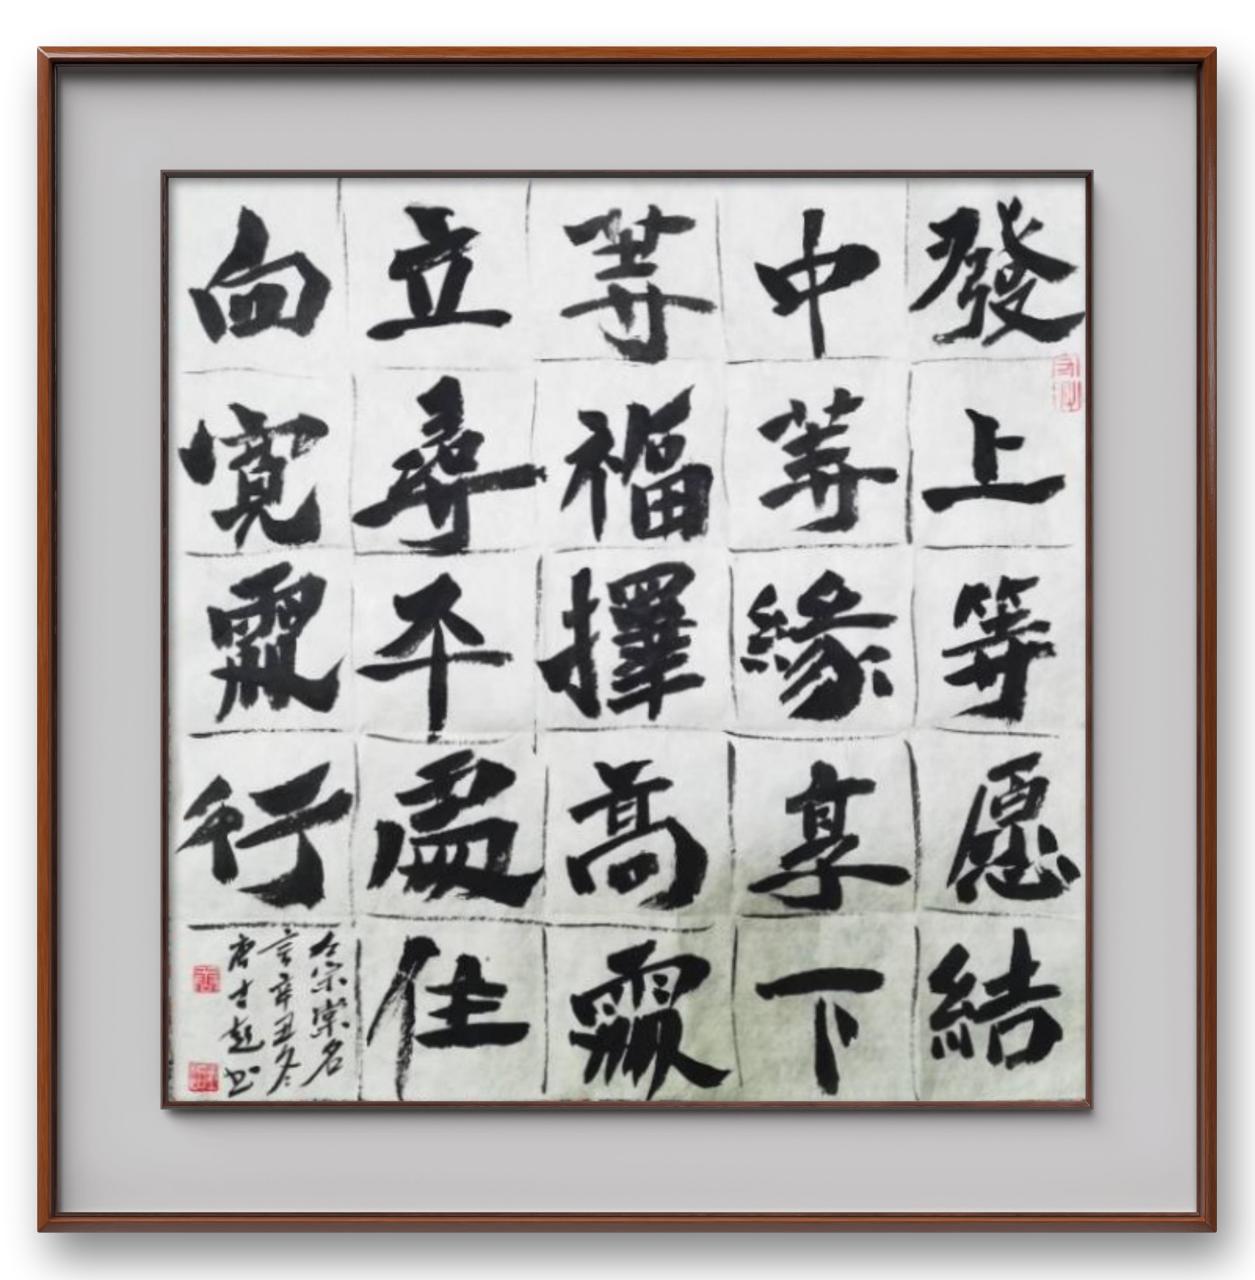 發上等愿結
中等緣享下
等福擇高處
立尋平處住
向寬處行
左宗棠名
言辛丑冬
唐
书